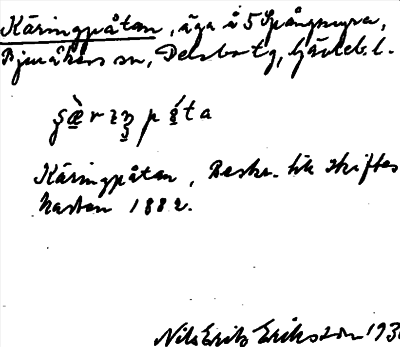 Käringpåtan, äga å 5 Spångmyra,
Bjuråkers sn, Delsbo tg, Gävleb. l.
Käringpåtan, Beskr. till skiftes
kartan 1882.
Nils Erik Eriksson 193